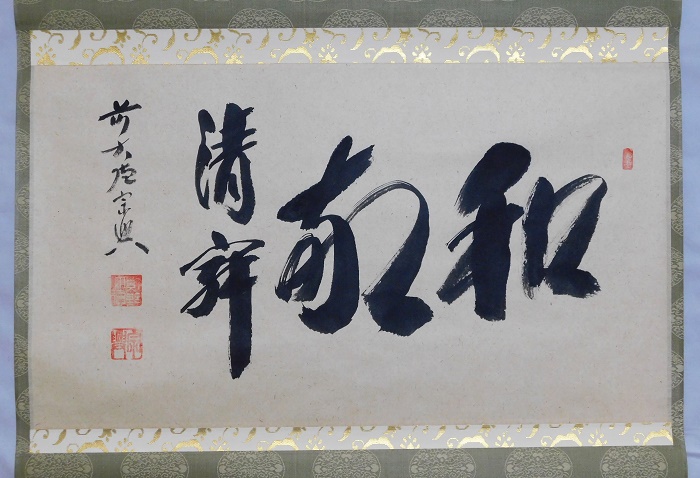 和
敬
清寂
前大徳宗興